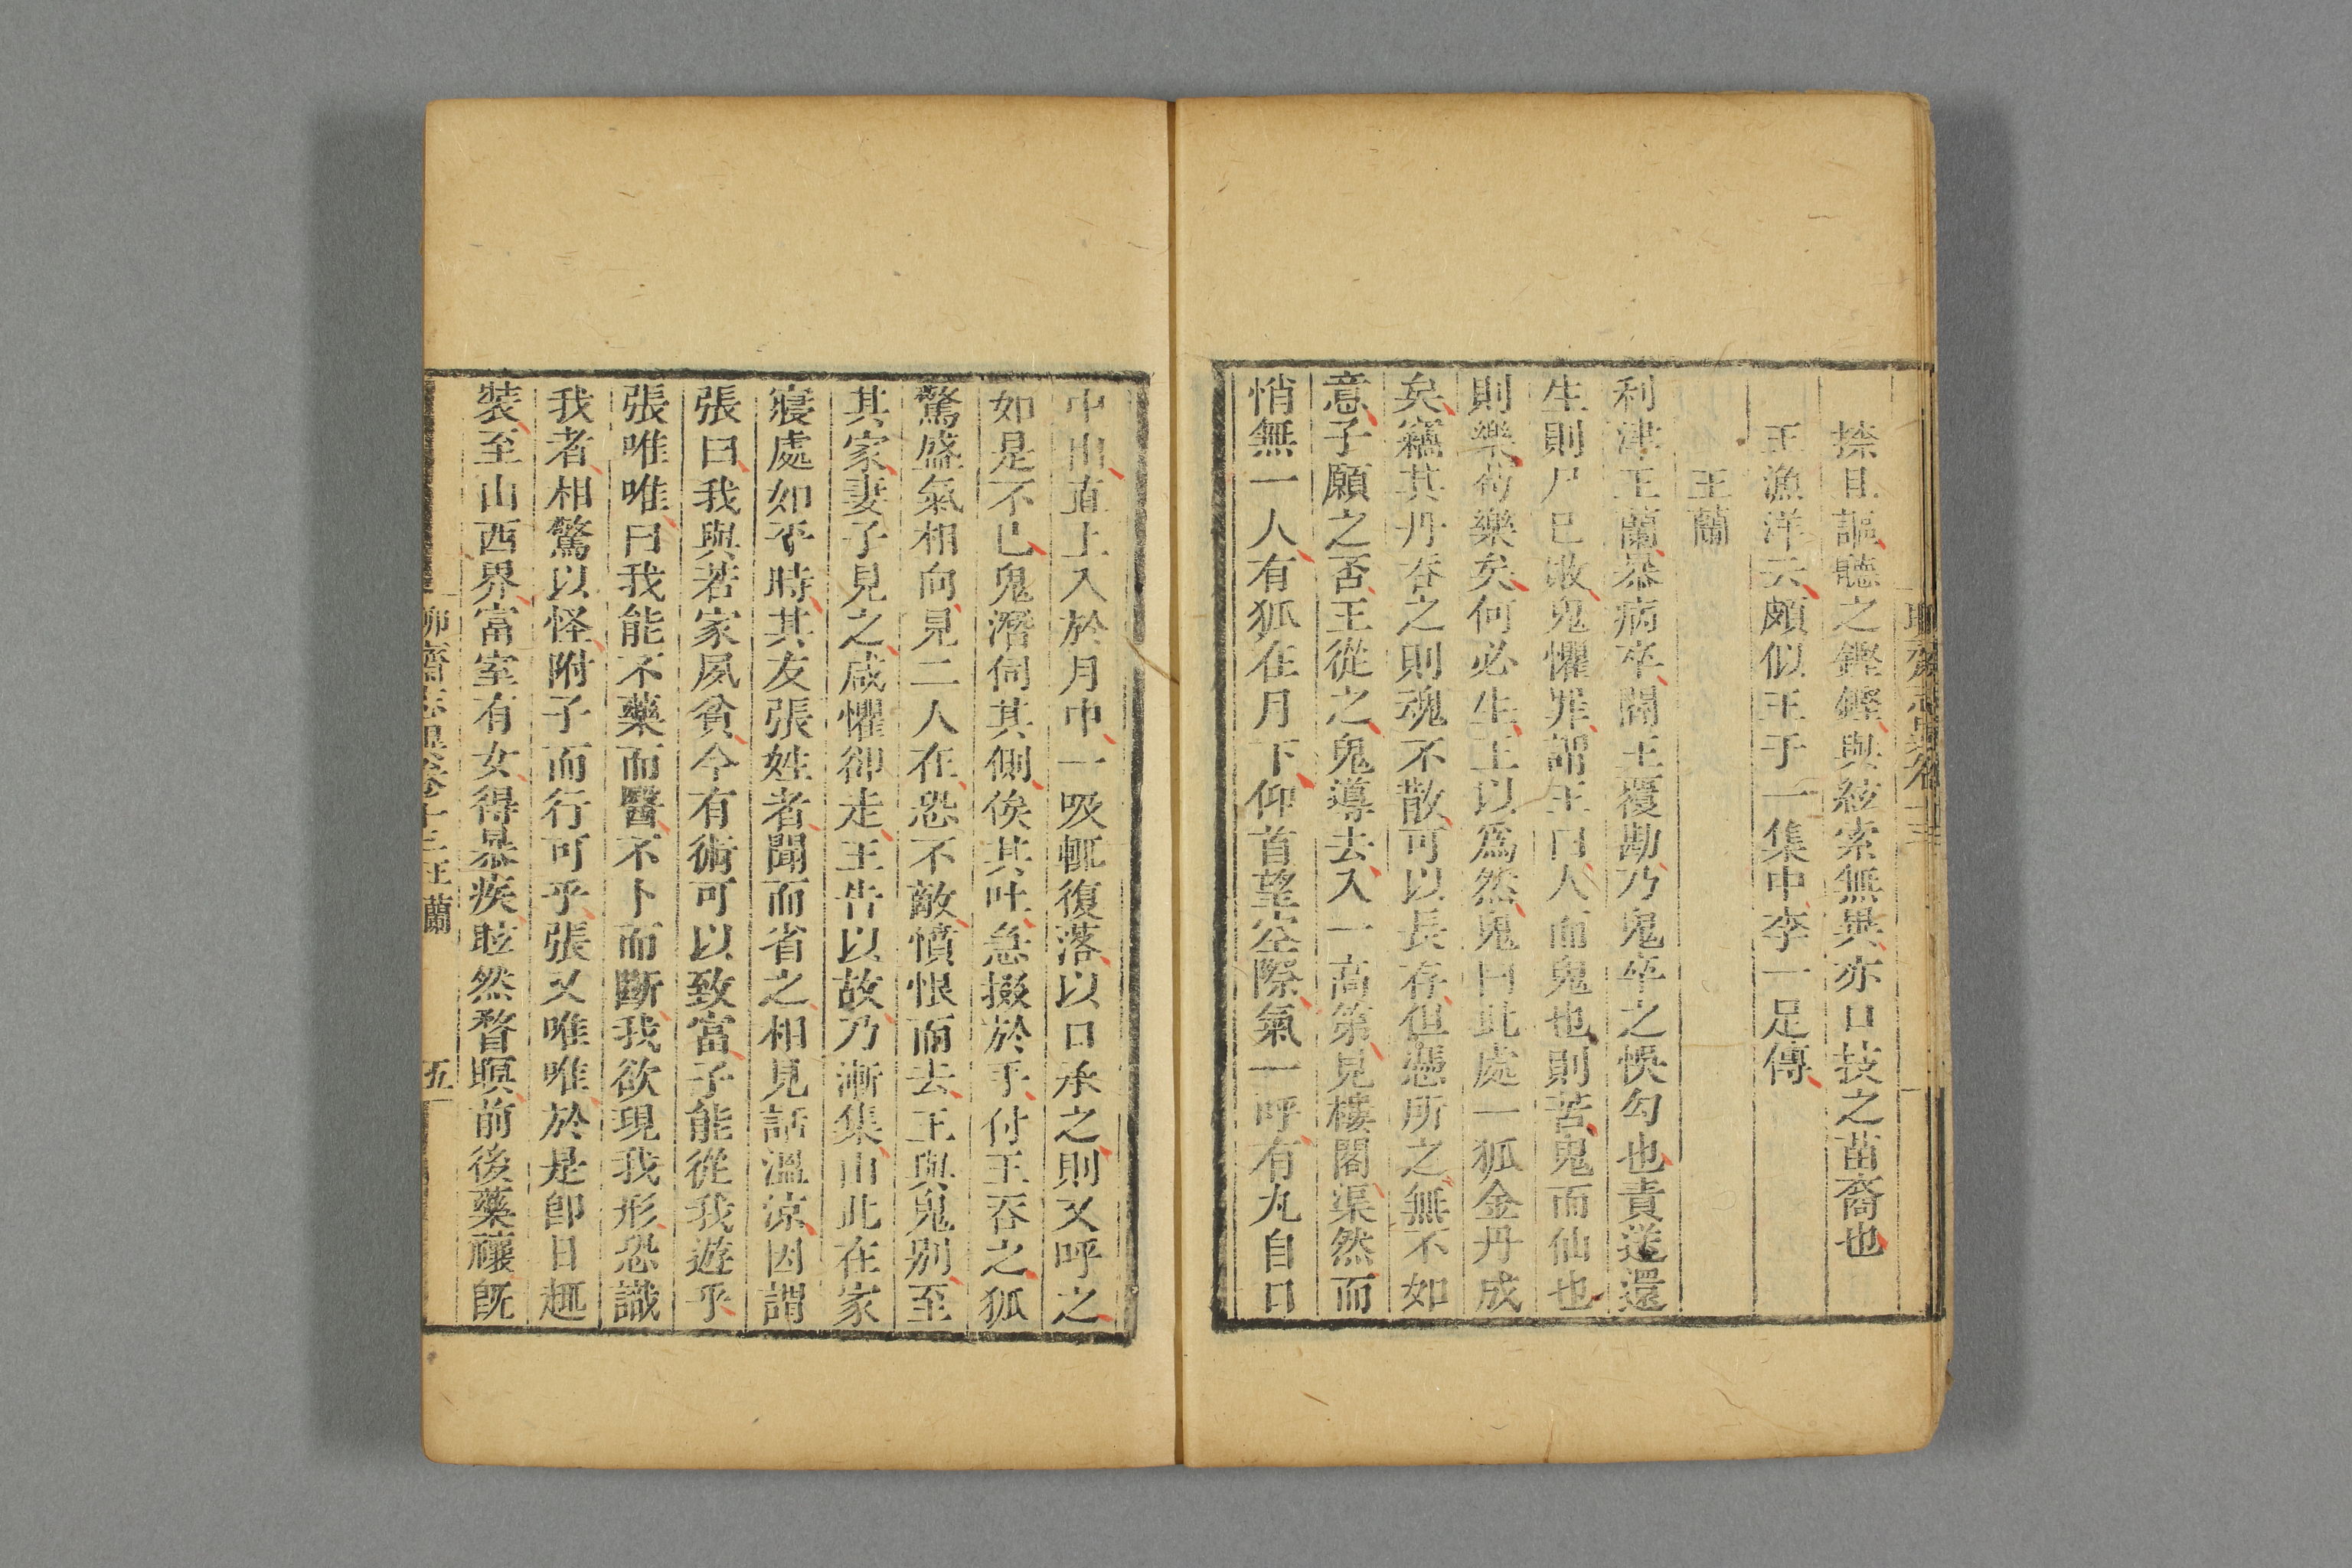 捺且謳聽之鏗鏗與絃索無異亦口技之苗裔也
王漁洋云頗似王于一集中李一足傳
王蘭
利津王蘭暴病卒閻王覆勘乃鬼卒之悞勾也責送還
生則尸已敗鬼懼罪謂王曰人而鬼也則苦鬼而仙也
則樂苟樂矣何必生王以爲然鬼曰此處一狐金丹成
矣竊其丹吞之則魂不散可以長存但憑所之無不如
意子願之否王從之鬼導去入一高第見樓閣渠然而
悄無一人有狐在月下仰首望空際氣一呼有丸自口
中出直上入於月中一吸輒復落以口承之則又呼之
如是不已鬼潛伺其側俟其吐急掇於手付王吞之狐
驚盛氣相向見二人在恐不敵憤恨而去王與鬼別至
其家妻子見之咸懼卻走王告以故乃漸集由此在家
寢處如平時其友張姓者聞而省之相見話溫涼因謂
張曰我與若家夙貧今有術可以致富子能從我遊乎
張唯唯曰我能不藥而醫不卜而斷我欲現我形恐識
我者相驚以怪附子而行可乎張又唯唯於是卽日趣
裝至山西界富室有女得暴疾眩然瞀瞑前後藥禳旣
聊齋志異卷十三 王蘭 五